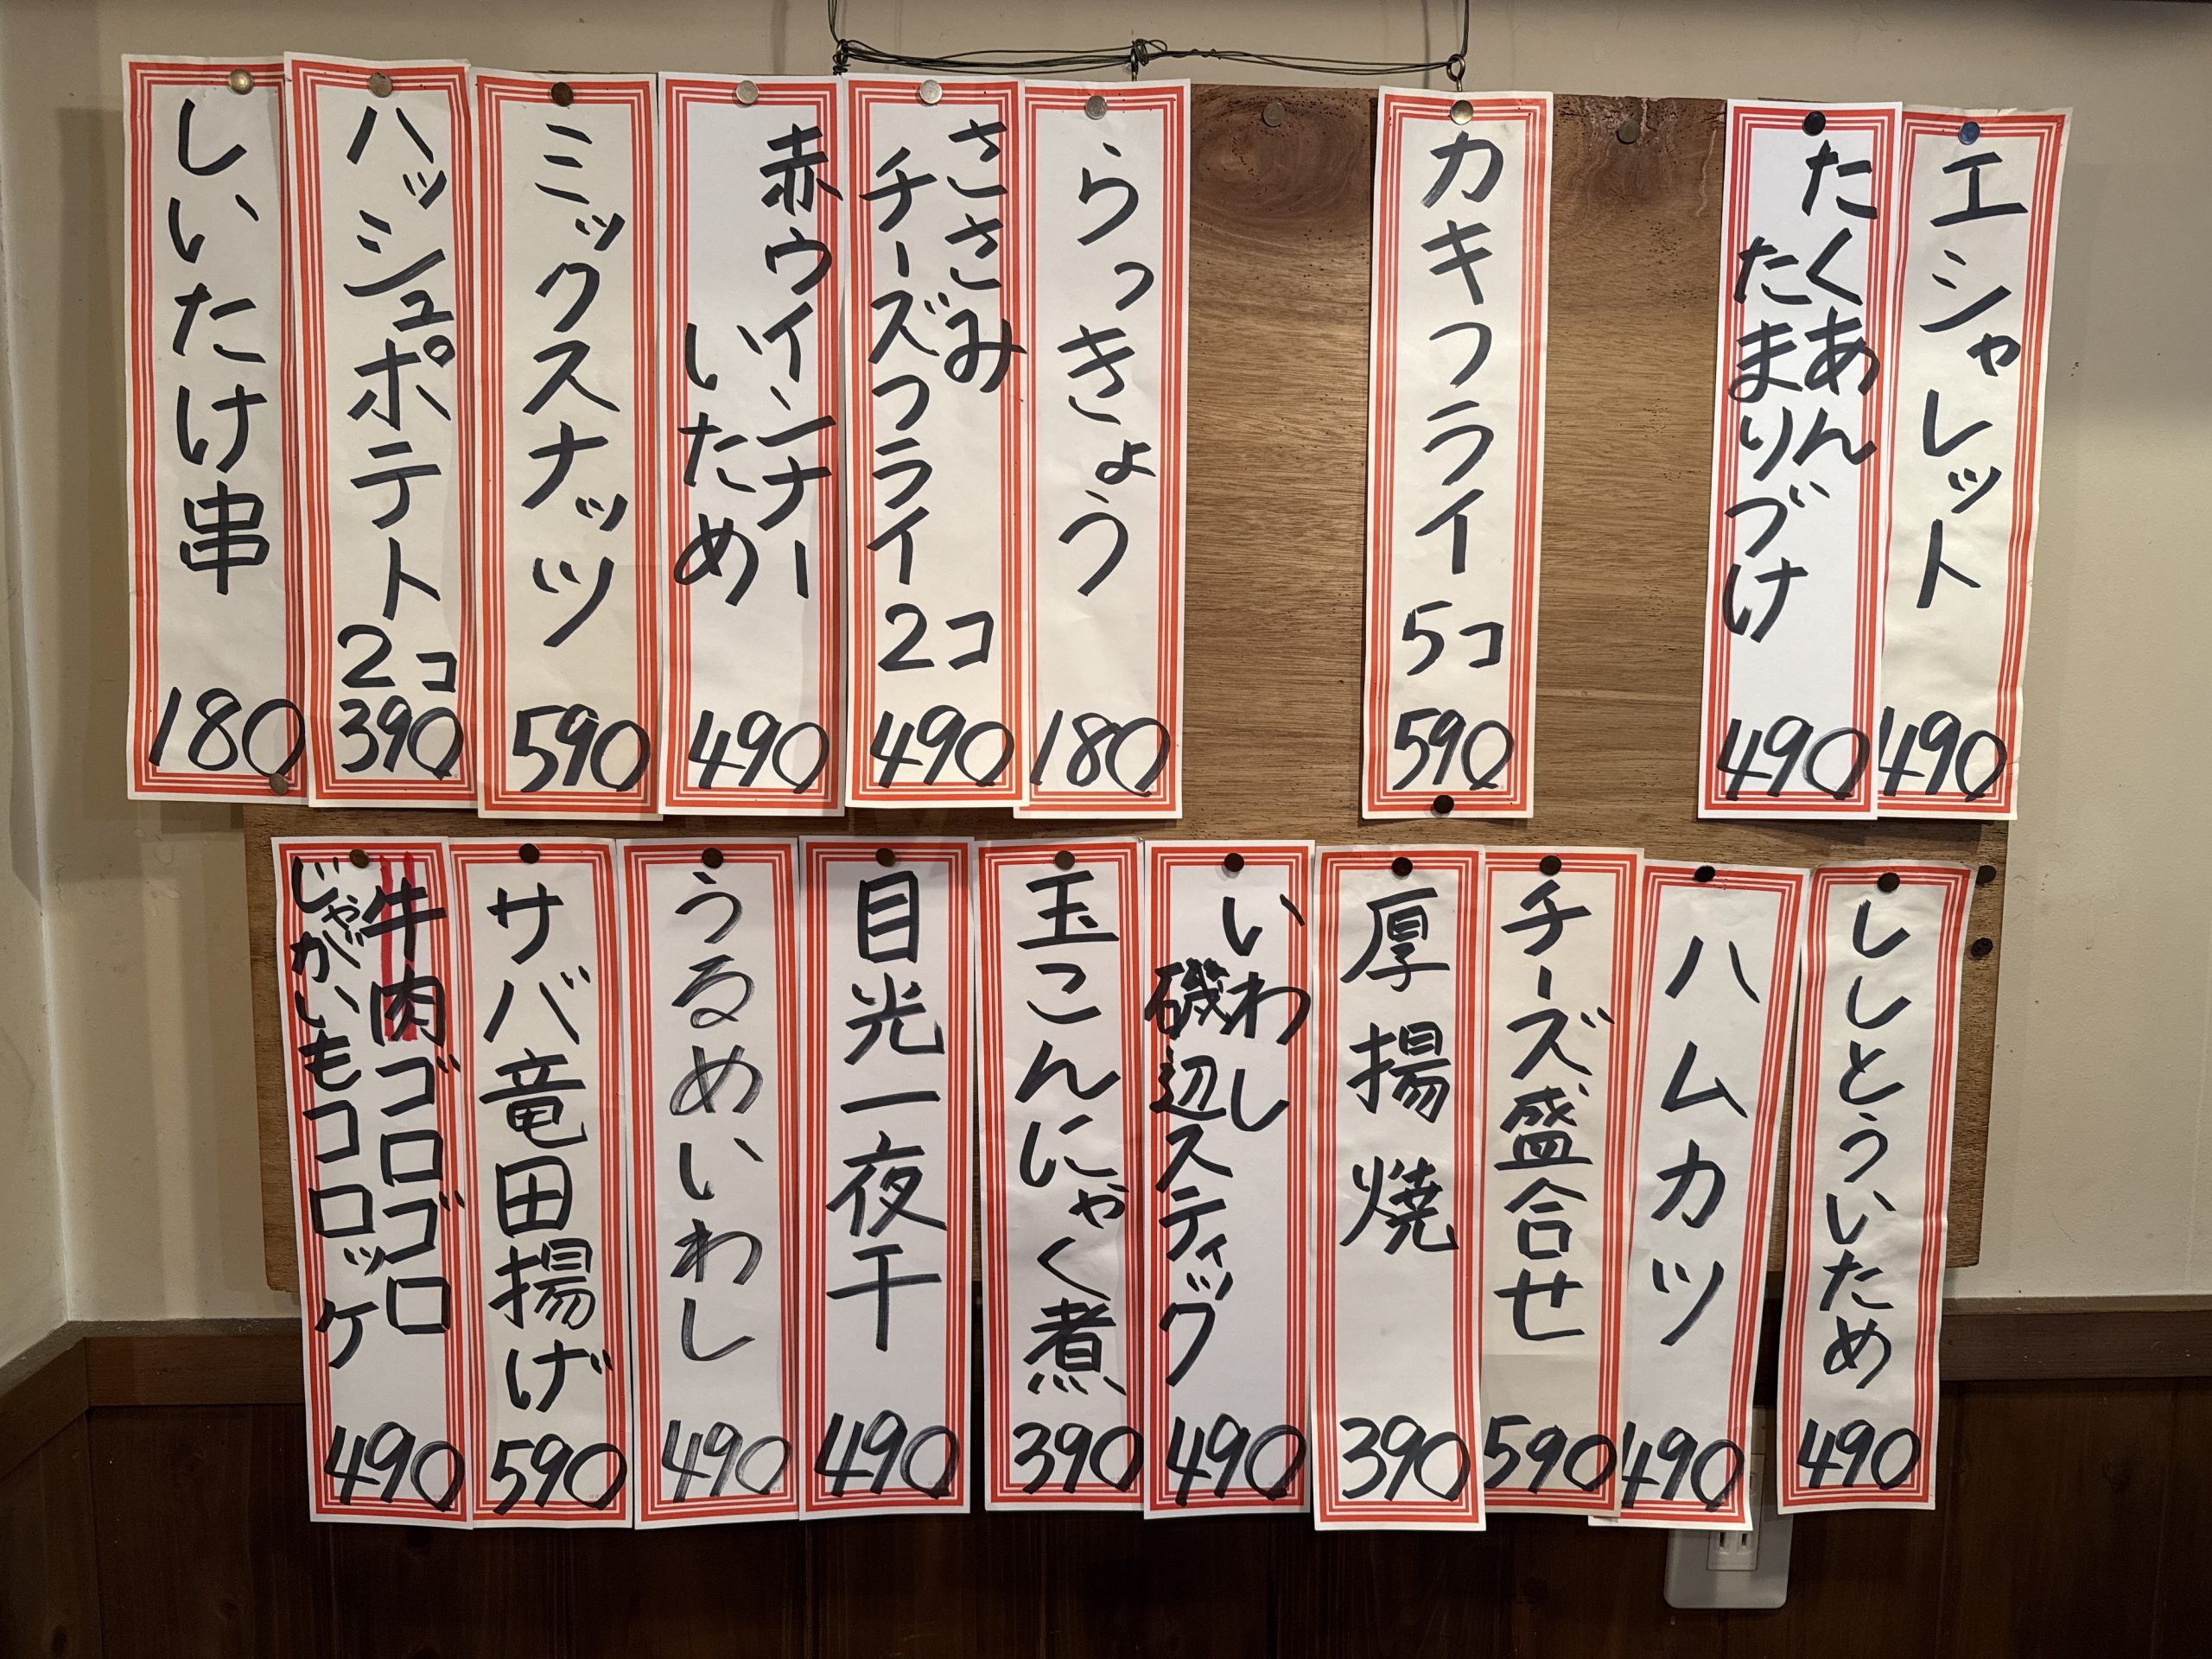 エシャレット
490
たくあん
たまりづけ
490
カキフライ 5コ
590
らっきょう
180
ささみ
チーズフライ 2コ
490
赤ウインナー
いため
490
ミックスナッツ
590
ハッシュポテト 2コ
390
しいたけ串
180
ししとういため
490
ハムカツ
490
チーズ盛合せ
590
厚揚焼
390
いわし
磯辺スティック
490
玉こんにゃく煮
390
目光一夜干
490
うるめいわし
490
サバ竜田揚げ
590
牛肉ゴロゴロ
じゃがいもコロッケ
490